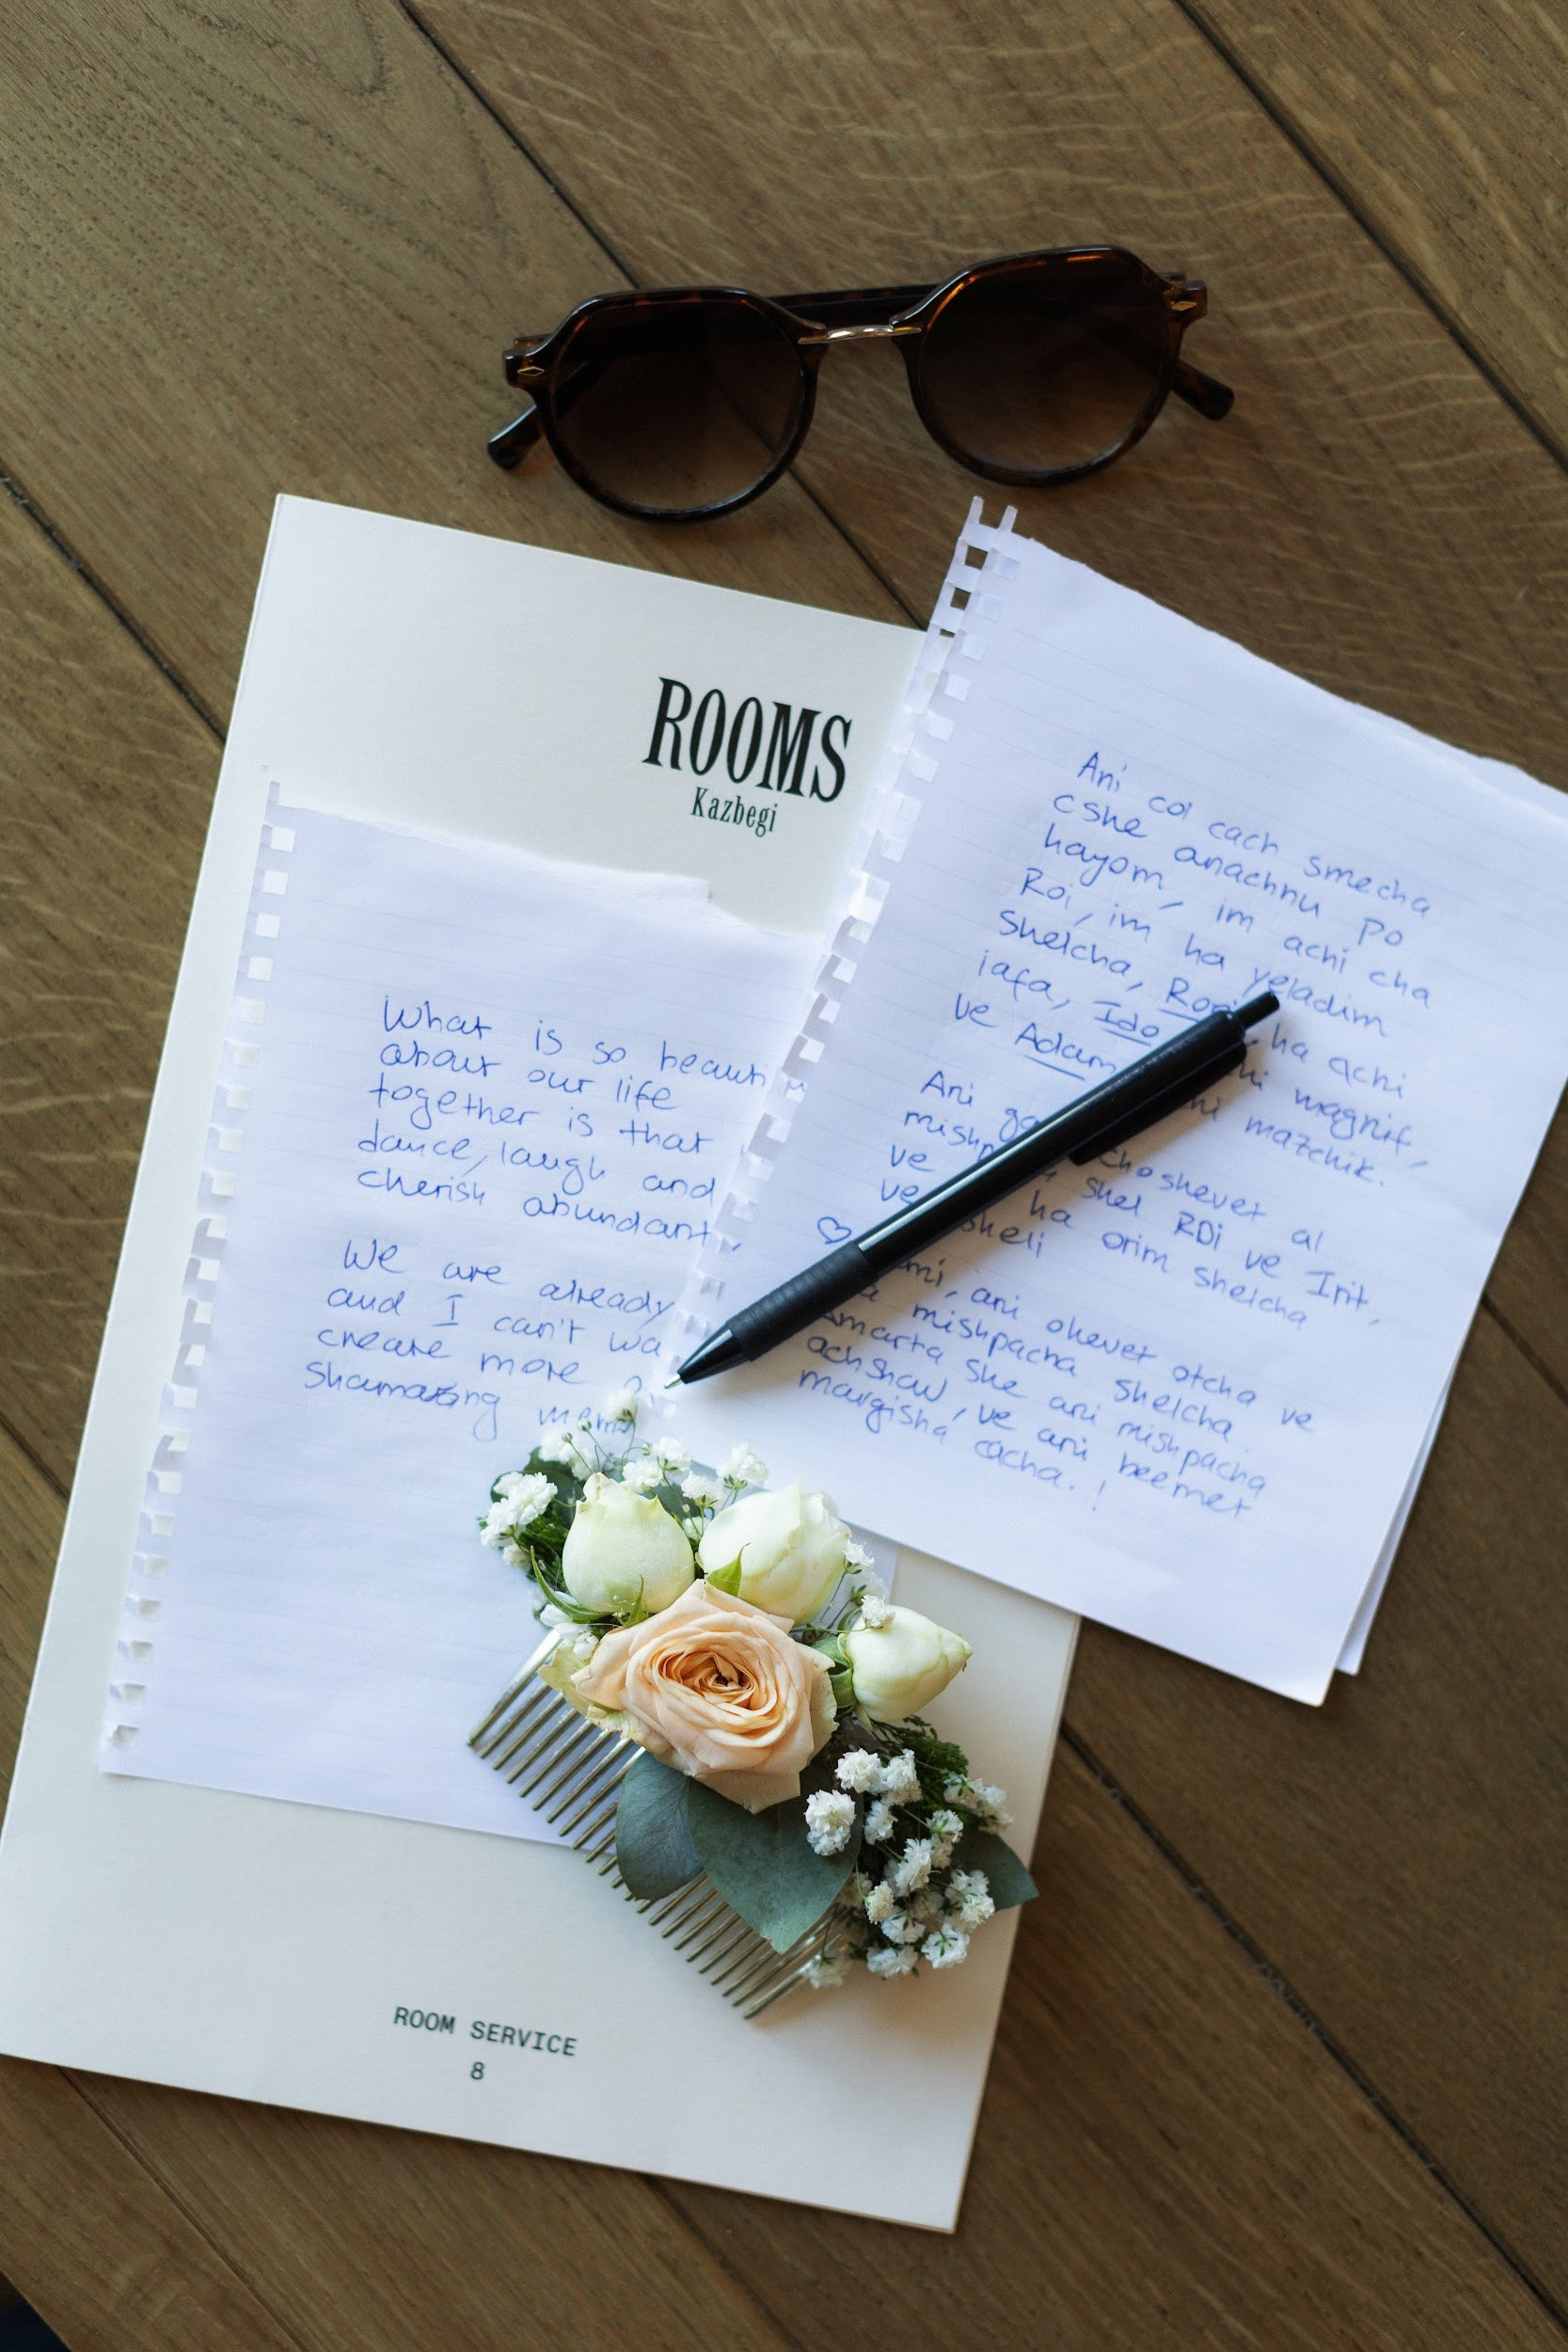 ROOMS
Kazbegi
What is so beauti
about our life
together is that
dance, laugh and
cherish abundant,
We are already
and I can't wa
create more
Shamazing mem
Ani col cach smecha
cshe anachnu po
hayom, im achi cha
Roi, im ha yeladim
Shelcha, ha achi
iafa, Ido magnif,
ve Adam mazchik.
Ani choshevet al
shel ROi ve Irit,
ve ha orim shelcha
ve sheli
ani ohevet otcha ve
mishpacha shelcha.
Amarta she ani mishpacha
achshaw, ve ani beemet
margisha cacha.!
ROOM SERVICE
8